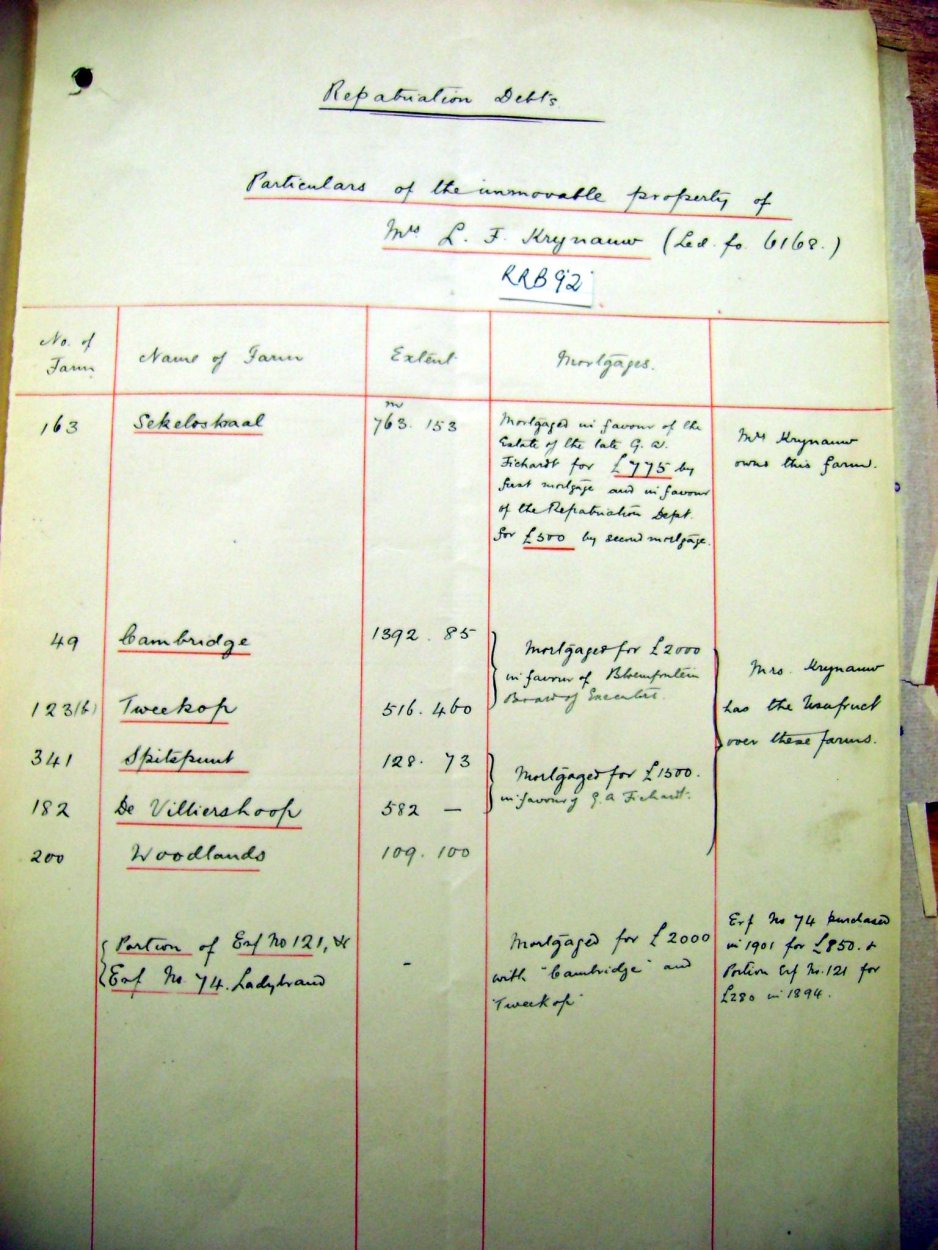 Repatriation Debts.
Particulars of the immovable property of
Mrs L. F. Krynauw (Led. fo. 6168.)
RRB 92
No. of
Farm
Name of Farm
Extent
Mortgages.
163
Sekeloskraal
m
763. 153
Mortgaged in favour of the
Estate of the late G. A.
Fichardt for £775 by
first mortgage and in favour
of the Repatriation Dept.
for £500 by second mortgage.
Mrs Krynauw
owns this farm.
49
Cambridge
1392. 85
Mortgaged for £2000
in favour of Bloemfontein
Board of Executors.
123(b)
Tweekop
516. 460
341
Spitspunt
128. 73
Mortgaged for £1500.
in favour of G. A Fichardt.
182
De Villiershoop
582 —
200
Woodlands
109. 100
Mrs. Krynauw
has the Usufruct
over these farms.
Portion of Erf No 121, &
Erf No. 74. Ladybrand
-
Mortgaged for £2000
with "Cambridge" and
"Tweekop"
Erf No 74 purchased
in 1901 for £850. &
Portion Erf No. 121 for
£280 in 1894.